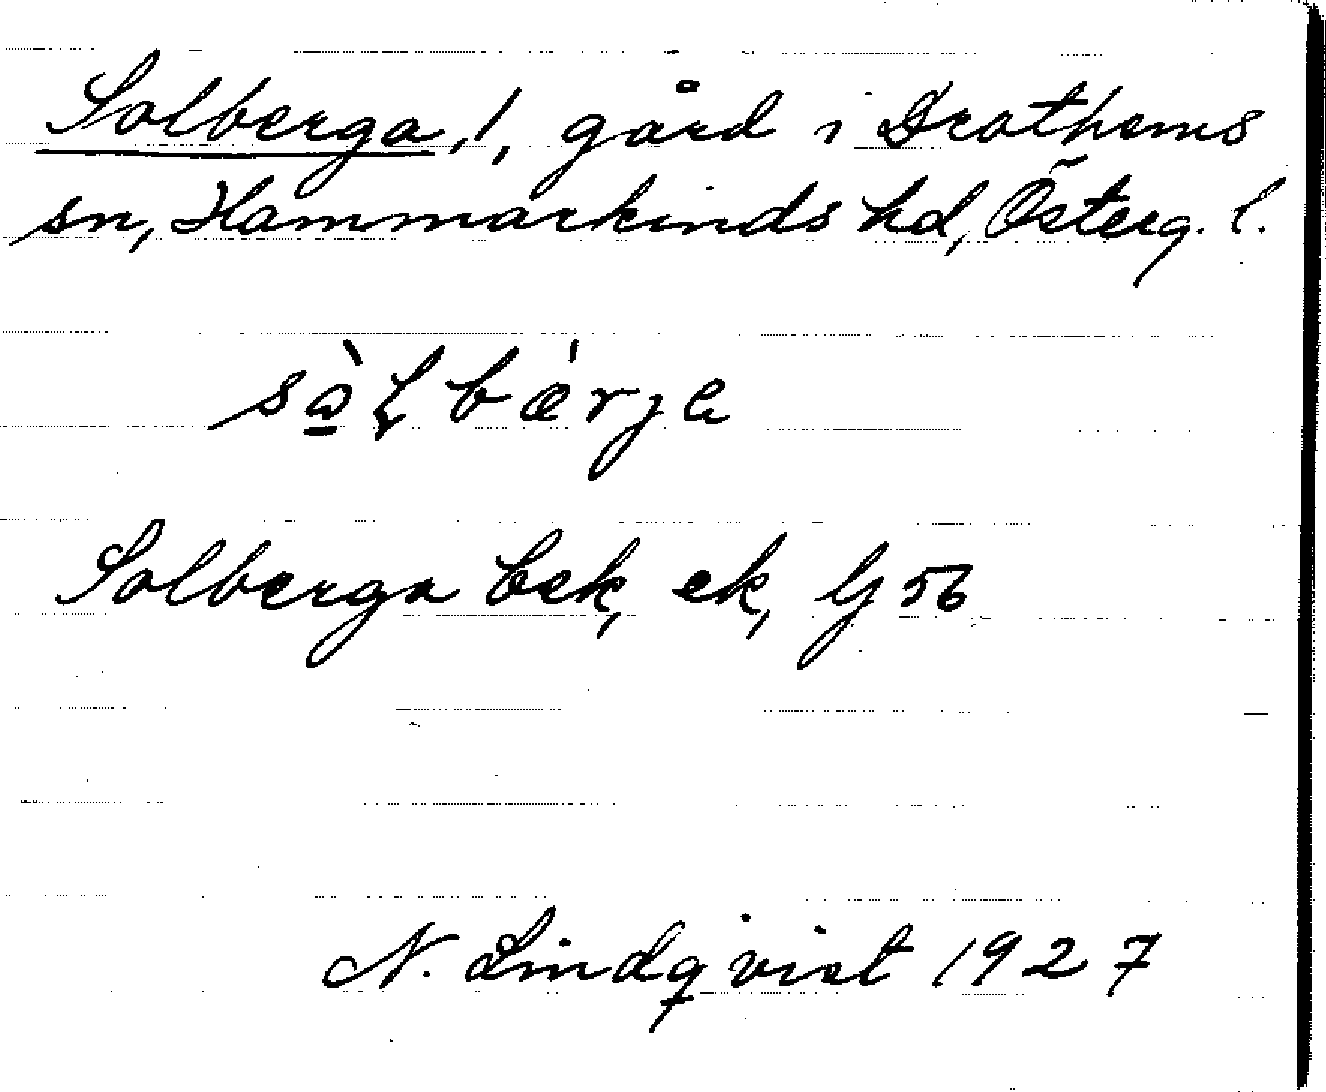 Solberga, 1, gård i Drothems
sn, Hammarkinds hd, Österg. l.
sò̠ɫbærja
Solberga bek, ek, Gj 56
N. Lindqvist 1927